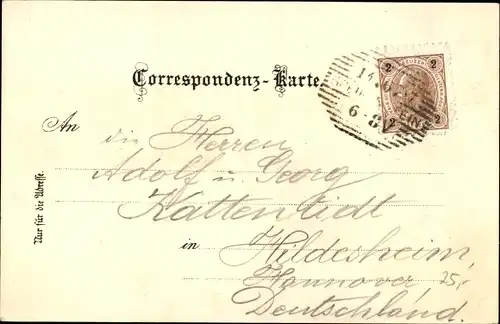 Correspondenz-Karte.
2 KREUZER 2
2 2
6-8
An die Herren
Adolf u. Georg
Kattentidt
in Hildesheim,
Hannover, 25,-
Deutschland.
Nur für die Adresse.